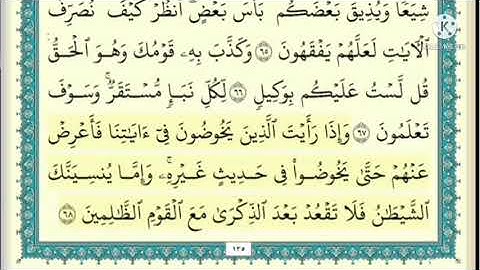 شِيَعًا وَيُذِيقَ بَعْضَكُم بَأْسَ بَعْضٍ ۗ ٱنظُرْ كَيْفَ نُصَرِّفُ
ٱلْـَٔايَـٰتِ لَعَلَّهُمْ يَفْقَهُونَ ٦٥ وَكَذَّبَ بِهِۦ قَوْمُكَ وَهُوَ ٱلْحَقُّ ۚ
قُل لَّسْتُ عَلَيْكُم بِوَكِيلٍ ٦٦ لِّكُلِّ نَبَإٍ مُّسْتَقَرٌّ ۚ وَسَوْفَ
تَعْلَمُونَ ٦٧ وَإِذَا رَأَيْتَ ٱلَّذِينَ يَخُوضُونَ فِىٓ ءَايَـٰتِنَا فَأَعْرِضْ
عَنْهُمْ حَتَّىٰ يَخُوضُوا۟ فِى حَدِيثٍ غَيْرِهِۦ ۚ وَإِمَّا يُنسِيَنَّكَ
ٱلشَّيْطَـٰنُ فَلَا تَقْعُدْ بَعْدَ ٱلذِّكْرَىٰ مَعَ ٱلْقَوْمِ ٱلظَّـٰلِمِينَ ٦٨
١٣٥